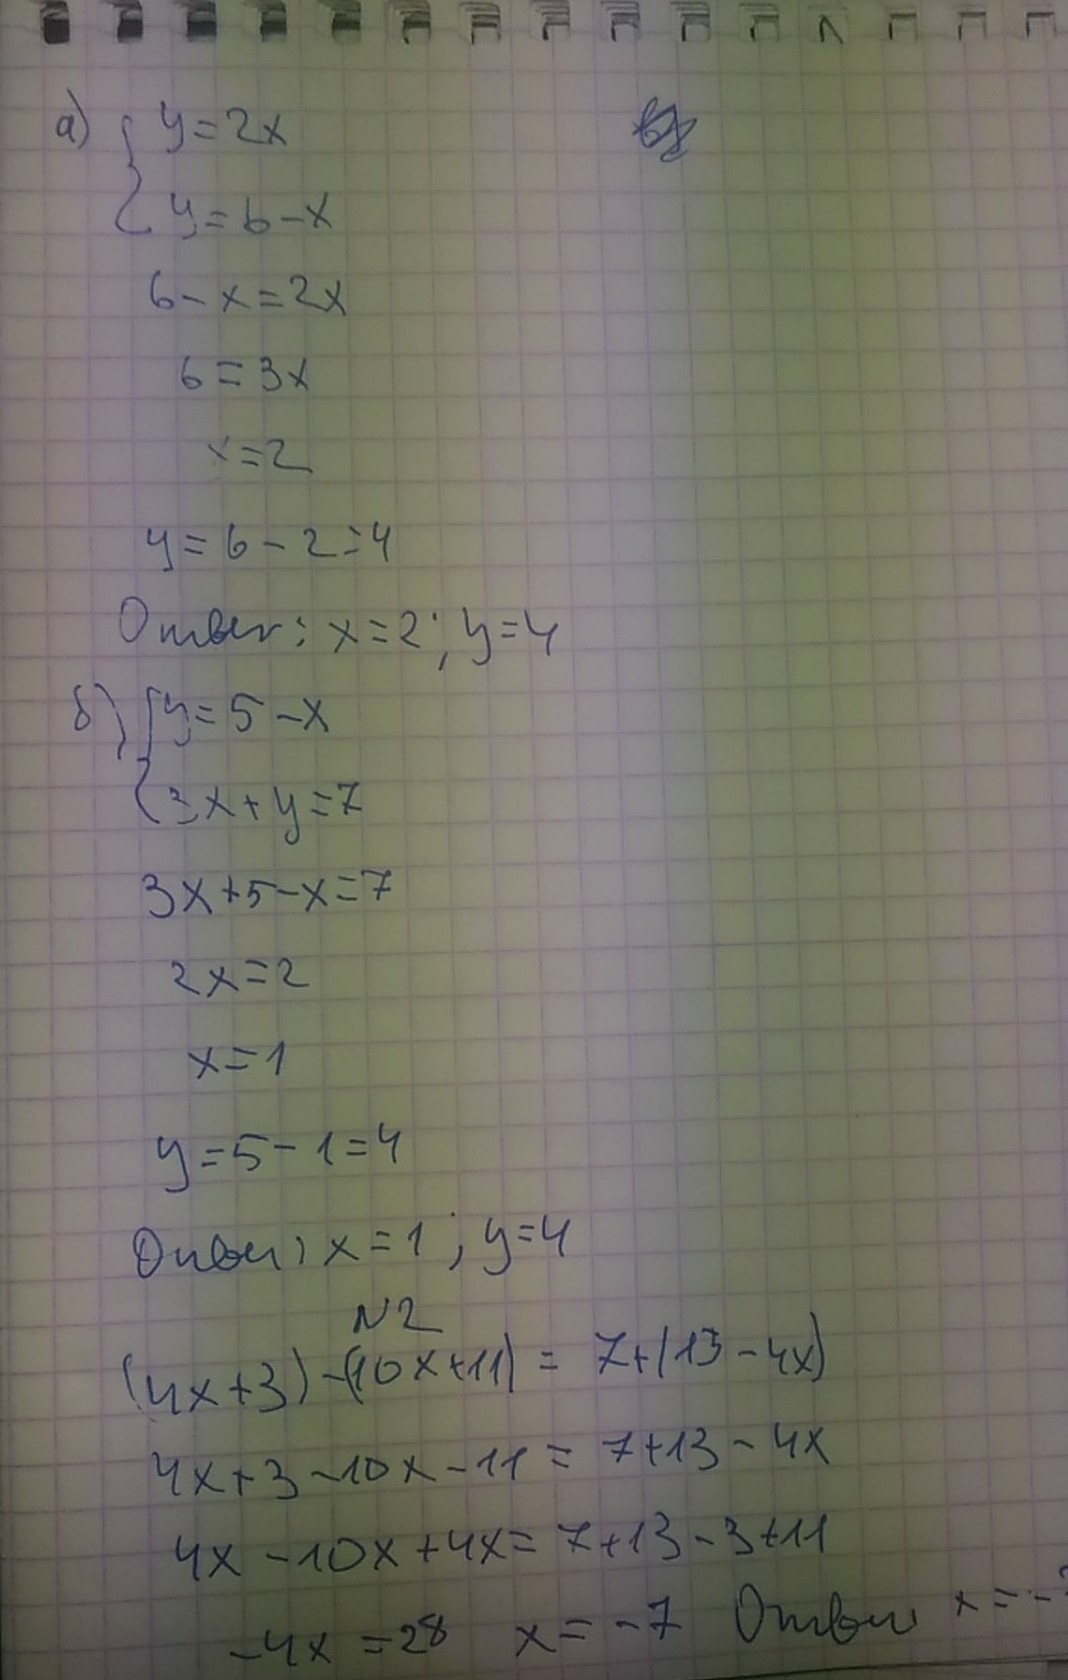 а) { y=2x
y=6-x
6-x=2x
6=3x
x=2
y=6-2=4
Ответ: x=2; y=4
б) { y=5-x
3x+y=7
3x+5-x=7
2x=2
x=1
y=5-1=4
Ответ: x=1; y=4
N2
(4x+3)-(10x+11) = 7+(13-4x)
4x+3-10x-11 = 7+13-4x
4x-10x+4x=7+13-3+11
-4x=28 x=-7 Ответ x=-